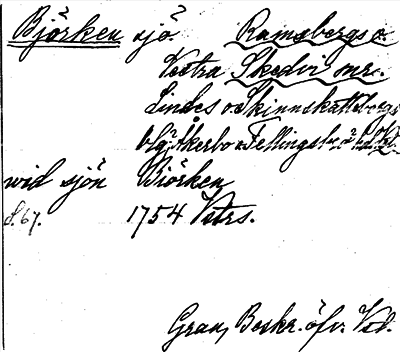 Björken sjö. Ramsbergs o.
Västra Skedvi snr.
Lindes o Skinnskattebergs
blg Åkerbo o Fellingsbro hd
wid sjön Biörken
S. 67. 1754 Vstrs.
Grau, Beskr. öfv. Vsl.